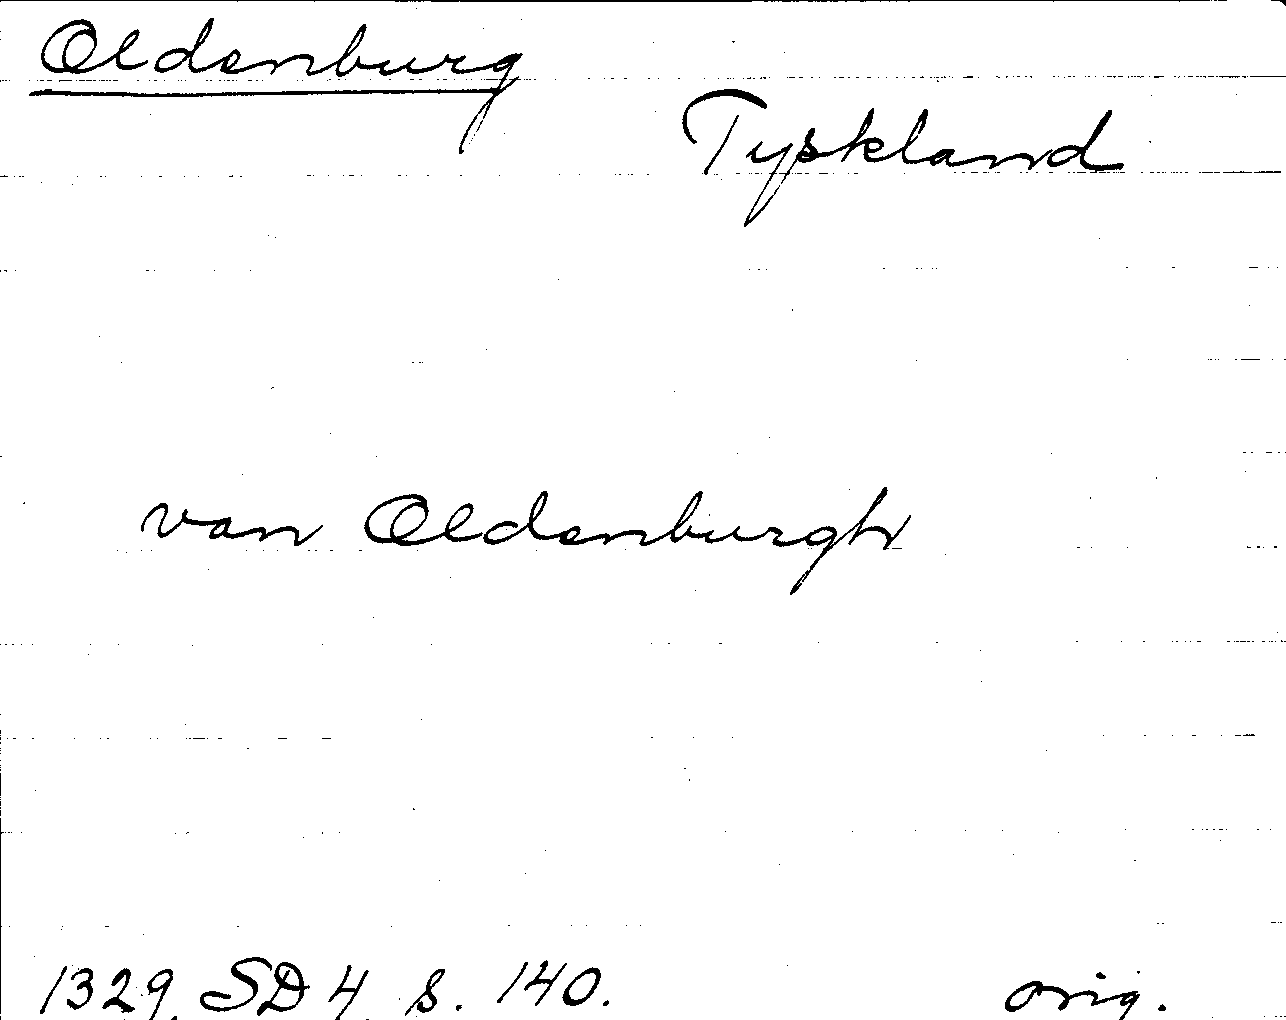 Oldenburg
Tyskland
van Oldenburgh
1329. SD 4 s. 140. orig.